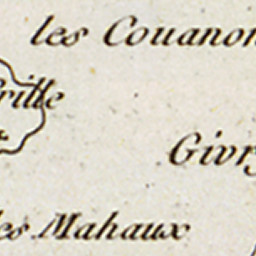 les Couanon
rille
Givry
les Mahaux